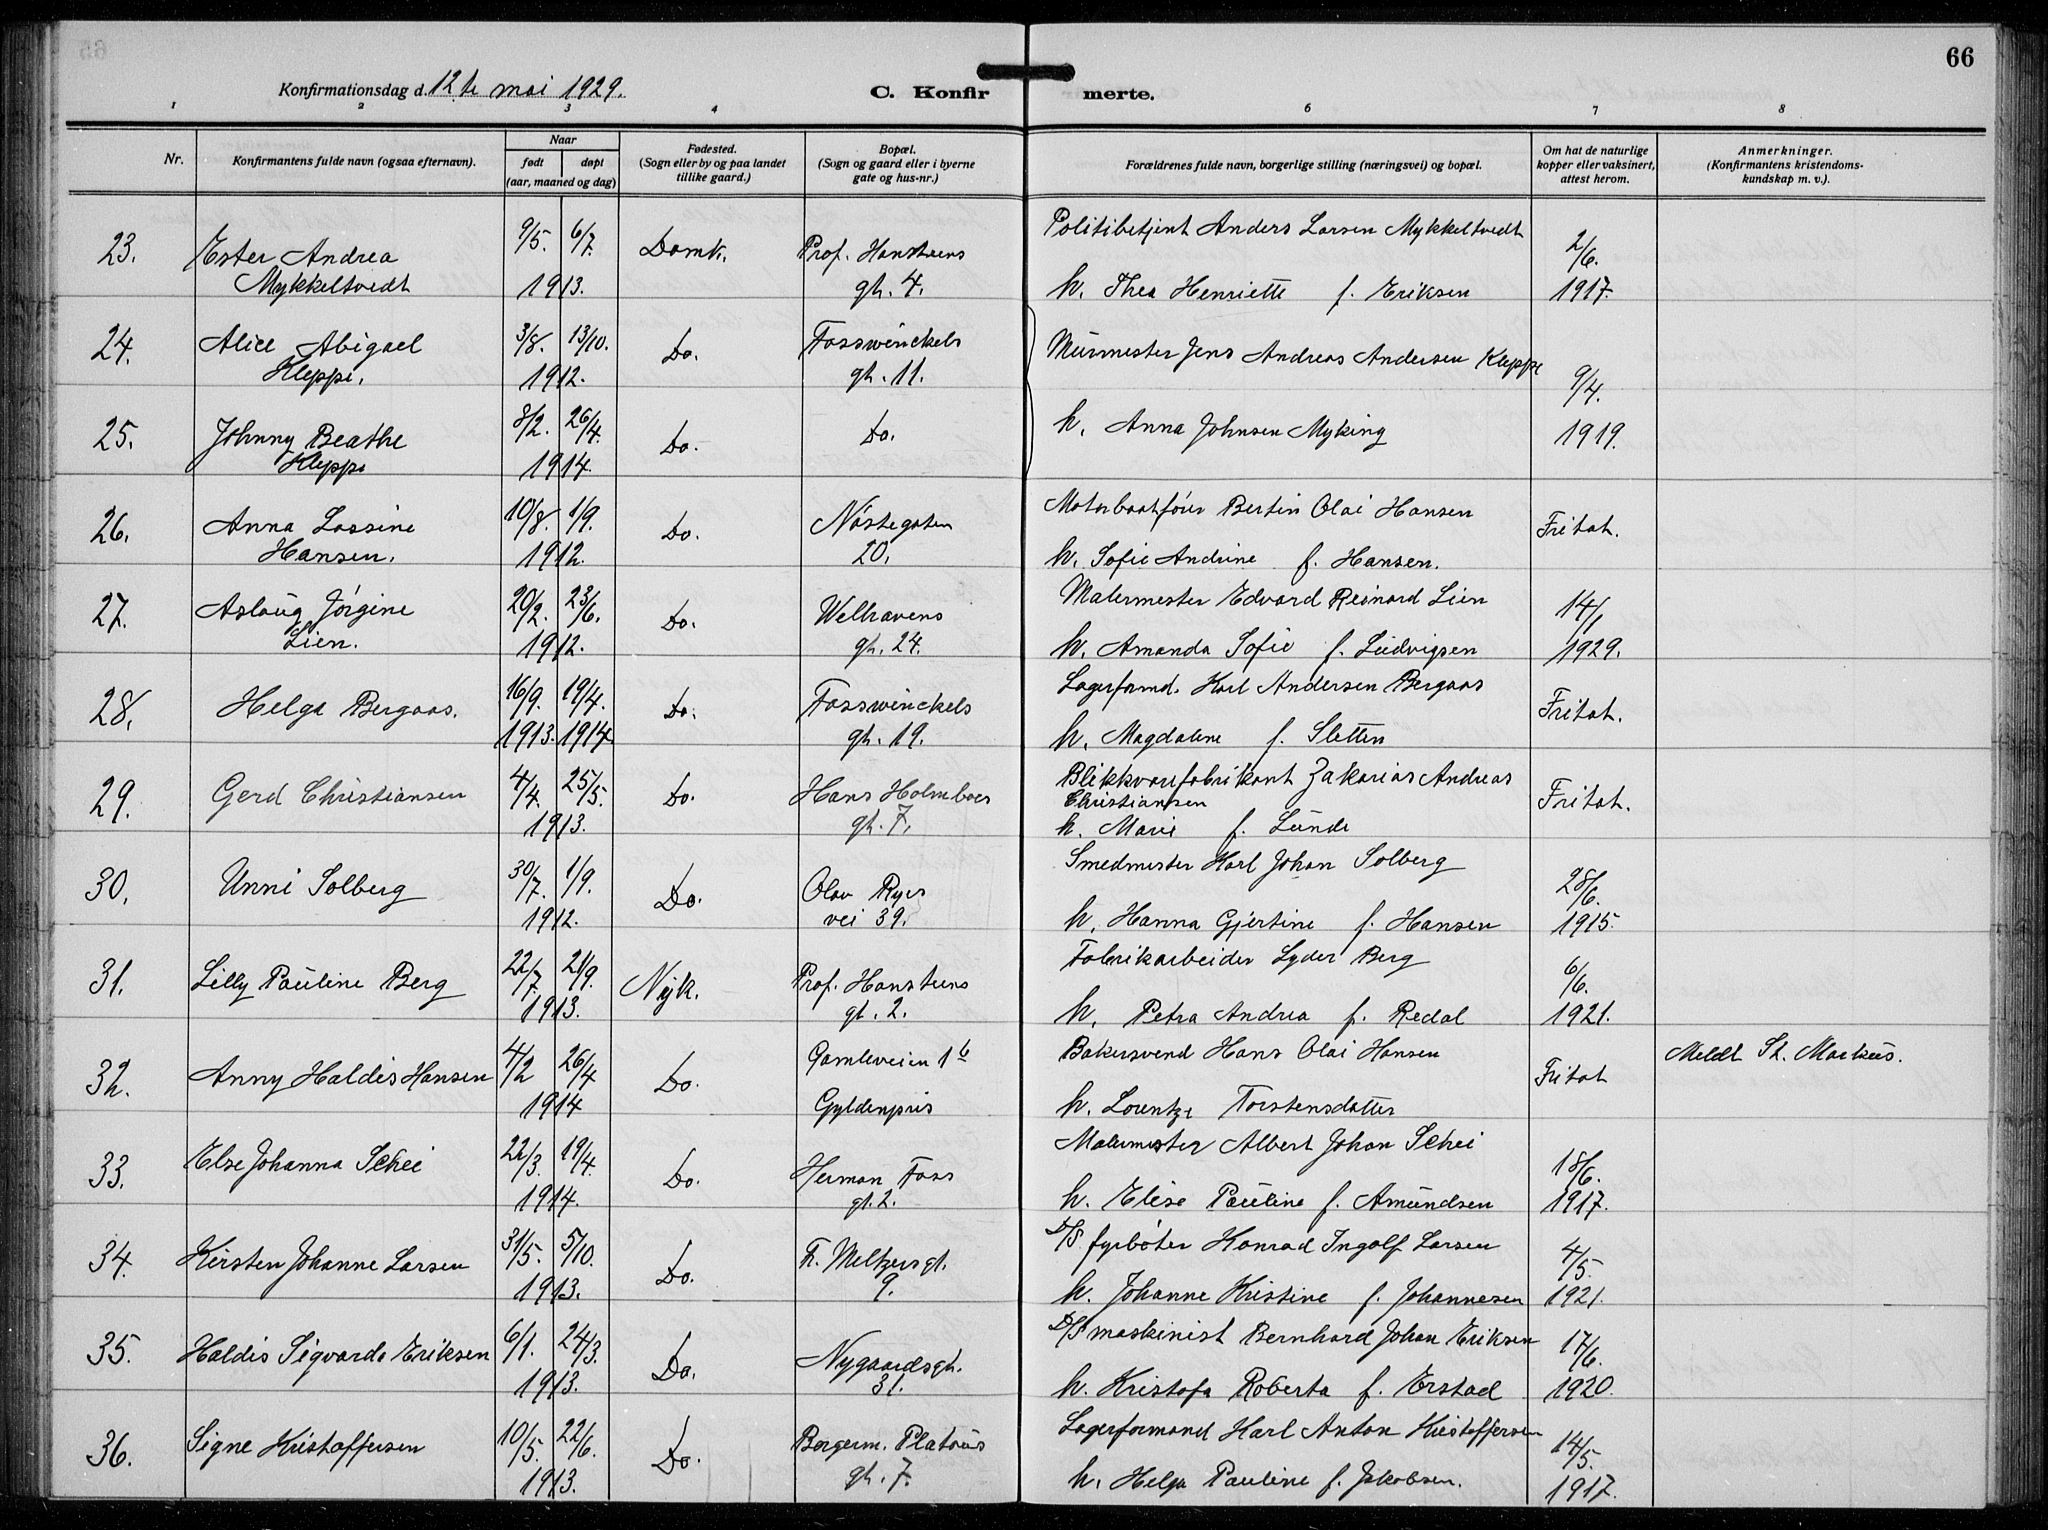 66
Konfirmationsdag d. 12te mai 1929. C. Konfirmerte.
1 2 3 4 5 6 7 8
Nr. Konfirmantens fulde navn (ogsaa efternavn). Naar født døpt (aar, maaned og dag) Fødested. (Sogn eller by og paa landet tillike gaard.) Bopæl. (Sogn og gaard eller i byerne gate og hus-nr.) Forældrenes fulde navn, borgerlige stilling (næringsvei) og bopæl. Om hat de naturlige kopper eller vaksinert, attest herom. Anmerkninger. (Konfirmantens kristendomskundskap m. v.).
23. Ester Andrea 9/5. 6/7. Domk. Prof. Hansteens Politibetjent Anders Larsen Mykkeltvedt 2/6.
Mykkeltvedt 1913. gt. 4. h. Thea Henriette f. Eriksen 1917.
24. Alice Abigael 3/8. 13/10. Do. Fosswinckels Murmester Jens Andreas Andersen Kleppe
Kleppe. 1912. gt. 11. 9/4.
25. Johnny Beathe 8/2. 26/4. Do. Do. h. Anna Johnsen Myking 1919.
Kleppe 1914.
26. Anna Lassine 10/8. 1/9. Do. Nøstegaten Motorbaatfører Bertin Olai Hansen Fritat.
Hansen. 1912. 20. h. Sofie Andrine f. Hansen.
27. Aslaug Jørgine 20/2. 23/6. Do. Welhavens Malermester Edvard Reinard Lien 14/1
Lien. 1912. gt. 24. h. Amanda Sofie f. Ludvigsen 1929.
28. Helga Bergaas. 16/9. 19/4. Do. Fosswinckels Lagerformd. Karl Andersen Bergaas Fritat.
1913. 1914. gt. 19. h. Magdalene f. Sletten
29. Gerd Christiansen 4/4. 25/5. Do. Hans Holmboes Blikkvarefabrikant Zakarias Andreas Christiansen Fritat.
1913. gt. 7. h. Marie f. Lunde
30. Unni Solberg 30/7. 1/9. Do. Olav Ryes Smedmester Karl Johan Solberg 28/6.
1912. vei 39. h. Hanna Gjertine f. Hansen 1915.
31. Lilly Pauline Berg 22/7. 21/9. Nyk. Prof. Hansteens Fabrikarbeider Lyder Berg 6/6.
1913. gt. 2. h. Petra Andrea f. Redal 1921.
32. Anny Haldis Hansen 4/2 26/4 Do. Gamleveien 1b Bakersvend Hans Olai Hansen Fritat Meldt St. Markus.
1914 Gyldenpris h. Lorentze Torstensdatter
33. Else Johanna Schei 22/3. 19/4. Do. Herman Foss Malermester Albert Johan Schei 18/6.
1914. gt. 2. h. Elise Pauline f. Amundsen 1917.
34. Kirsten Johanne Larsen 31/5. 5/10. Do. F. Meltzersgt. D/S fyrbøter Konrad Ingolf Larsen 4/5.
1913. 9. h. Johanne Kristine f. Johannesen 1921.
35. Haldis Sigvarda Eriksen 6/1. 24/3. Do. Nygaardsgt. D/S maskinist Bernhard Johan Eriksen 17/6.
1913. 31. h. Kristofa Roberta f. Erstad 1920.
36. Signe Kristoffersen 10/5. 22/6. Do. Borgerm. Platous Lagerformand Karl Anton Kristoffersen 14/5.
1913. gt. 7. h. Helga Pauline f. Jakobsen. 1917.